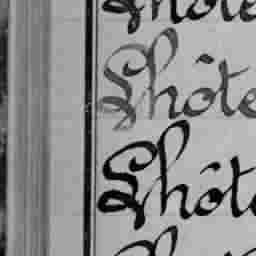 Lhôte
Lhôte
Lhôte